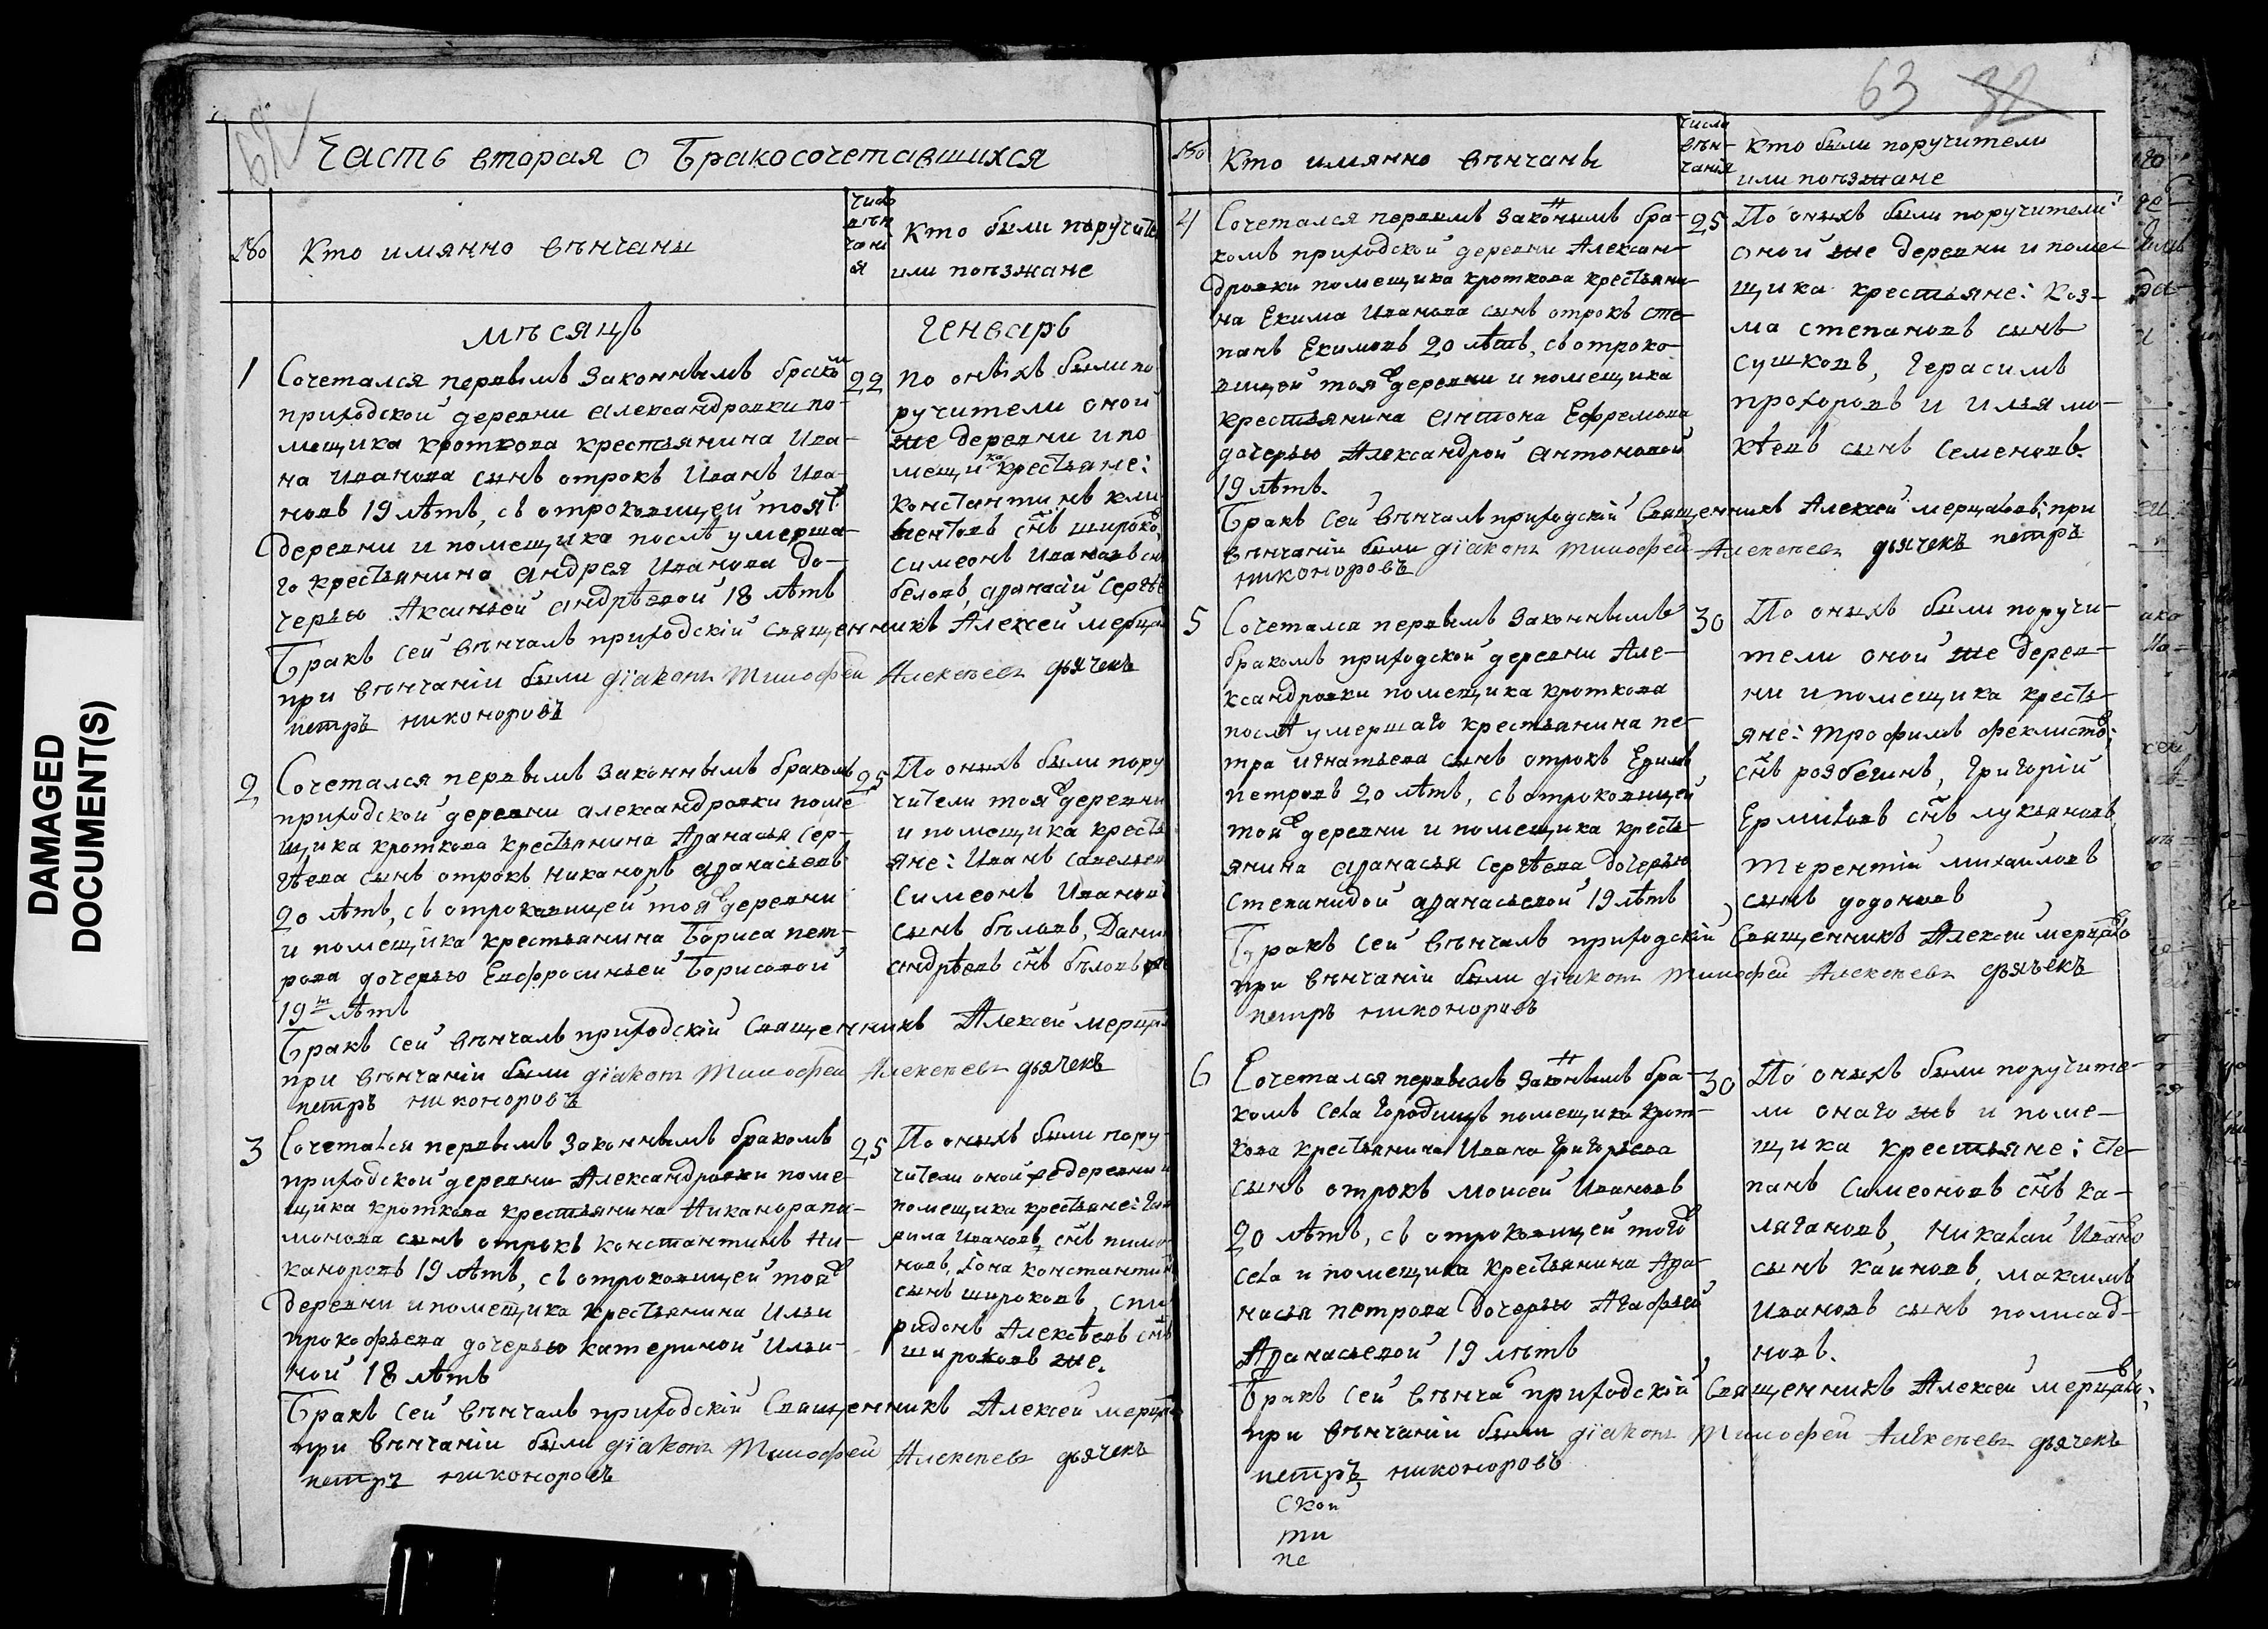 DAMAGED
DOCUMENT(S)
62
Часть вторая о Бракосочетавшихся
№
Кто имянно вѣнчаны
Число
вѣн
чані
я
Кто были поручите
или поѣзжане
мѣсяцъ
Генварь
1
Сочетался первымъ законнымъ бракомъ
приходской деревни александровки по-
мещика кроткова крестьянина Ива-
на иванова сынъ отрокъ Иванъ Ива-
новъ 19 лѣтъ, съ отроковицей тояже
деревни и помещика послѣ умерша-
го крестьянина андрея иванова до-
черью Аксиньей андрѣевой 18 лѣтъ
22
по оныхъ были по
ручители оной
же деревни и по
мещика крестьяне:
Константинъ кли
ментовъ снъ широко
симеонъ Ивановъ сн
беловъ, афанасій Сергѣ
Бракъ сей вѣнчалъ приходскій священникъ Алексей мерца
при вѣнчаніи были діаконъ Тимофей Алексеевъ дьячекъ
петръ никоноровъ
2
Сочетался первымъ законнымъ бракомъ
приходской деревни александровки поме
щика кроткова крестьянина Афанасья Сер-
гѣева сынъ отрокъ никаноръ афанасьевъ
20 лѣтъ, съ отроковицей тояже деревни
и помещика крестьянина Бориса пет-
рова дочерью Евфросиньей Борисовой
19ти лѣтъ
25
По оныхъ были пору
чители тояже деревни
и помещика кресть
яне: Иванъ савельев
Симеонъ Иванов
сынъ бѣловъ, Дани
андрѣевъ снъ бѣловъ же
Бракъ сей вѣнчалъ приходскій Священникъ Алексей мерца
при вѣнчаніи были діаконъ Тимофей Алексеевъ дьячекъ
петръ никоноровъ
3
Сочетался первымъ законнымъ бракомъ
приходской деревни Александровки поме-
щика кроткова крестьянина Никанора пи-
монова сынъ отрокъ константинъ Ни-
каноровъ 19 лѣтъ, съ отроковицей тояже
деревни и помещика крестьянина Ильи
прокофьева дочерью катериной Ильи-
ной 18 лѣтъ
25
По оныхъ были пору-
чители оной же деревни и
помещика крестьяне: Гав
рила ивановъ снъ пимо
новъ, іона константин
сынъ широковъ, спи
ридонъ Алексѣевъ снъ
широковъ же.
Бракъ сей вѣнчалъ приходскій Священникъ Алексей мерца
при вѣнчаніи были діаконъ Тимофей Алексеевъ дьячекъ
петръ никоноровъ
63 32
№
Кто имянно вѣнчаны
Число
вѣн-
чанія
Кто были поручители
или поѣзжане
4
Сочетался первымъ законнымъ бра-
комъ приходской деревни Алексан-
дровки помещика кроткова крестьяни-
на Екима Иванова сынъ отрокъ сте-
панъ Екимовъ 20 лѣтъ, съ отроко-
вицей тояже деревни и помещика
крестьянина антона Ефремова
дочерью Александрой антоновой
19 лѣтъ.
25
По оныхъ были поручители:
оной же деревни и поме-
щика крестьяне: Коз-
ма степановъ сынъ
сушковъ, герасимъ
прохоровъ и илья мо-
кѣевъ сынъ семеновъ.
Бракъ сей вѣнчалъ приходскій Священникъ Алексей мерцаловъ; при
вѣнчаніи были діаконъ Тимофей Алексеевъ дьячекъ петръ
никоноровъ
5
Сочетался первымъ законнымъ
бракомъ приходской деревни Але-
ксандровки помещика кроткова
послѣ умершаго крестьянина пе-
тра игнатьева сынъ отрокъ Ефимъ
петровъ 20 лѣтъ, съ отроковицей
тояже деревни и помещика кресть-
янина афанасья Сергѣева дочерью
степанидой афанасьевой 19 лѣтъ
30
По оныхъ были поручи-
тели оной же дерев-
ни и помещика кресть-
яне: трофимъ феклистовъ
снъ розбегинъ, григорій
Ермиловъ снъ лукьяновъ
терентій михаиловъ
сынъ додоновъ
Бракъ сей вѣнчалъ приходскій Священникъ Алексей мерцало
при вѣнчаніи были діаконъ Тимофей Алексеевъ дьячекъ
петръ никоноровъ
6
Сочетался первымъ законнымъ бра-
комъ села городищъ помещика крот-
кова крестьянина Ивана Григорьева
сынъ отрокъ моисей Ивановъ
20 лѣтъ, съ отроковицей тогоже
села и помещика крестьянина Афа-
насья петрова дочерью Агафьей
Афанасьевой 19 лѣтъ
30
По оныхъ были поручите-
ли онаго жъ и поме-
щика крестьяне: сте-
панъ симеоновъ снъ ка-
лягановъ, николай Ивано
сынъ каиновъ, максимъ
ивановъ сынъ полисад-
новъ.
Бракъ сей вѣнчалъ приходскій Священникъ Алексей мерцаловъ;
при вѣнчаніи были діаконъ Тимофей Алексеевъ дьячекъ
петръ никоноровъ
ской
ти
пе